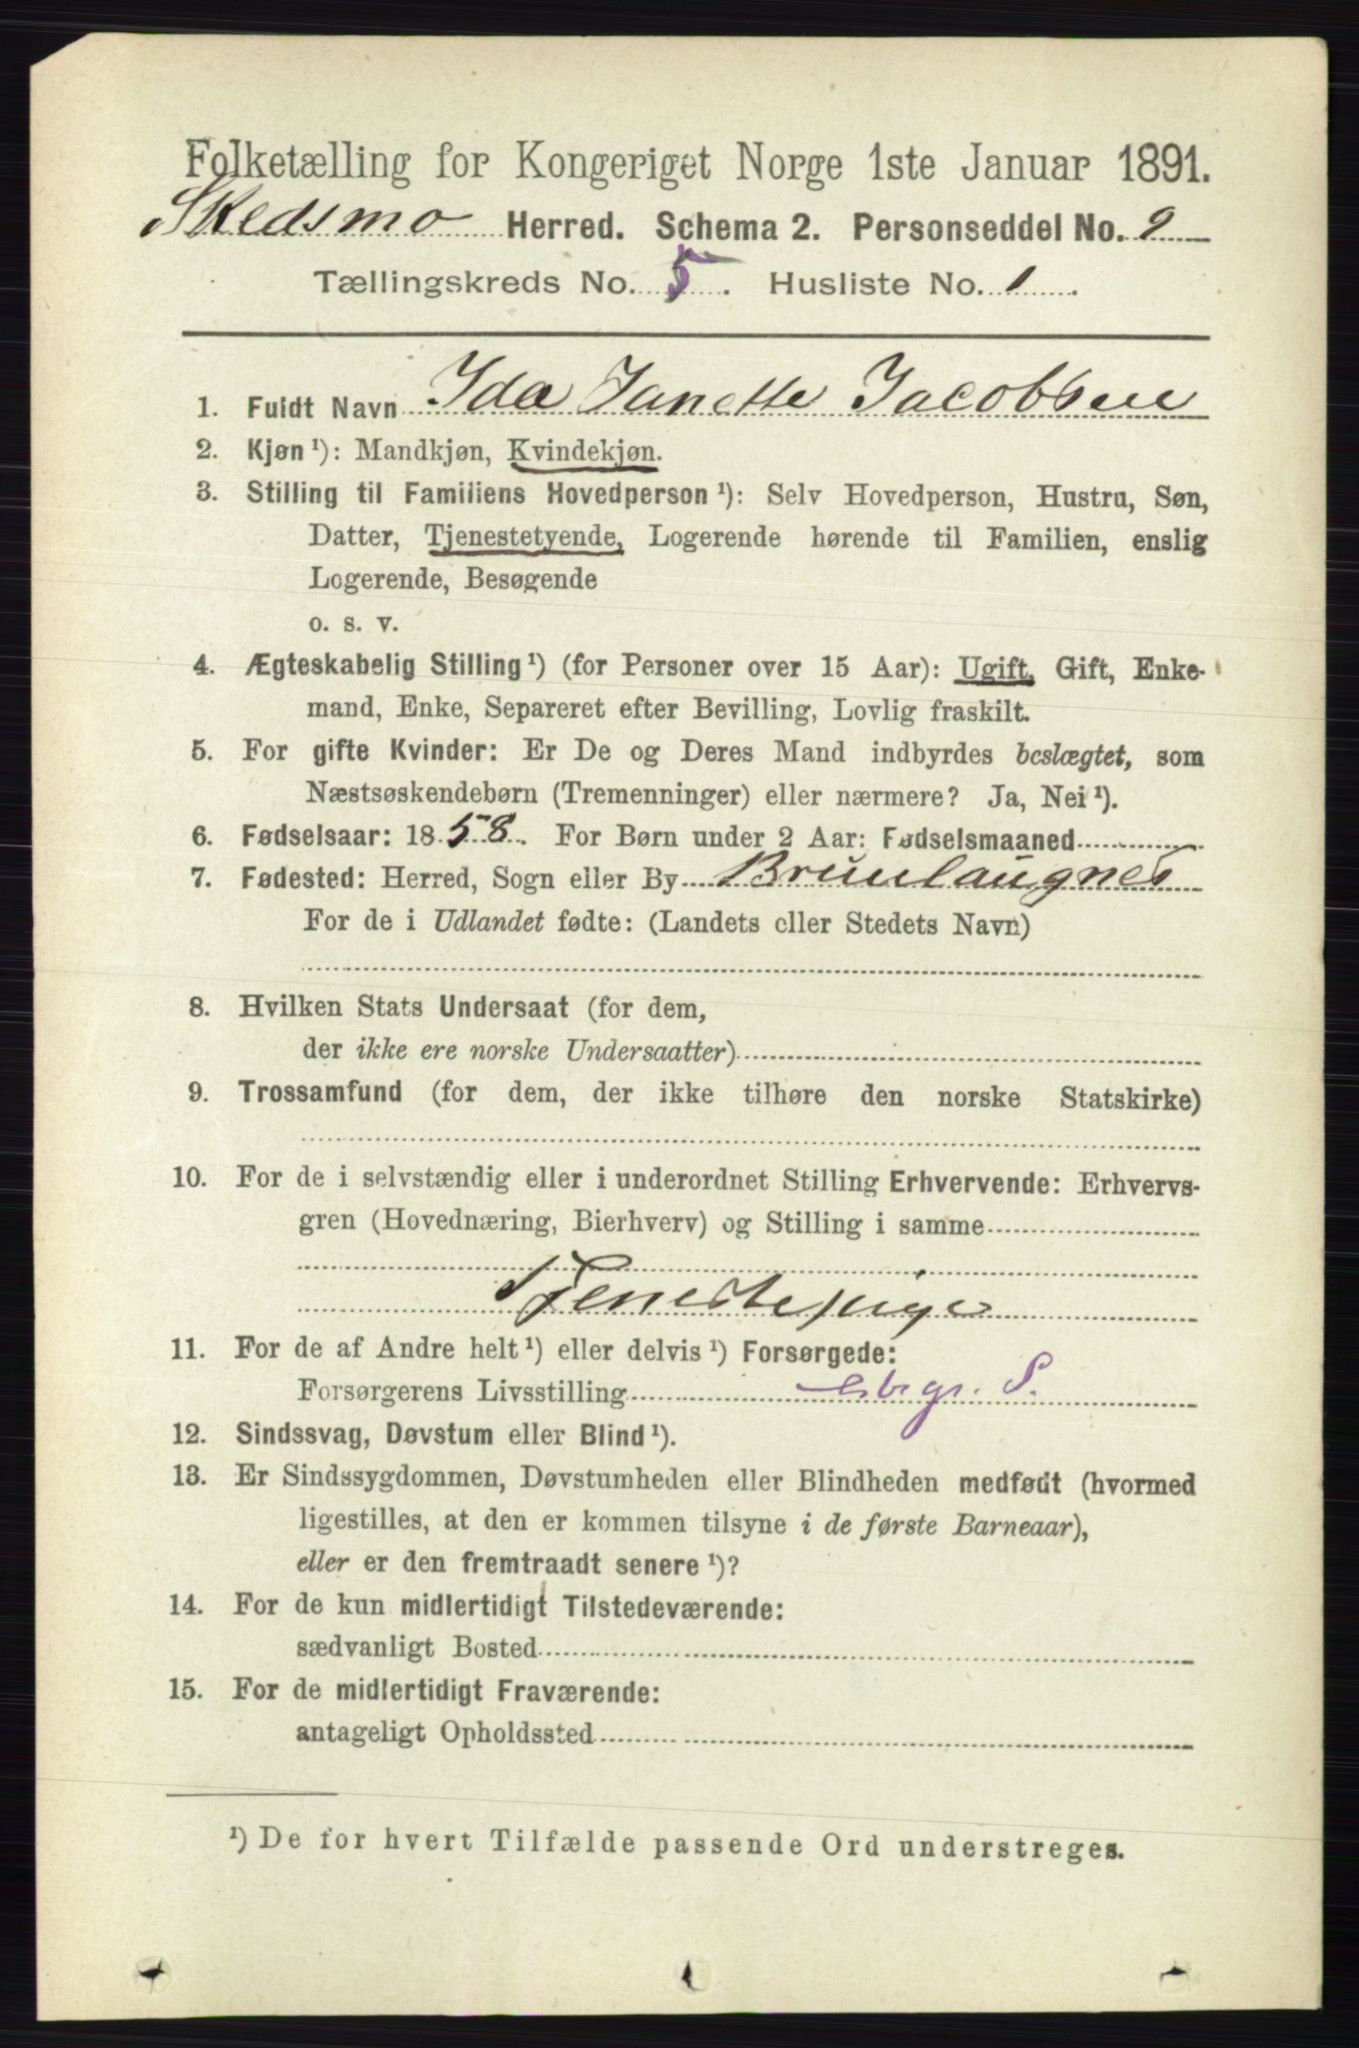 Folketælling for Kongeriget Norge 1ste Januar 1891.
Skedsmo Herred. Schema 2. Personseddel No. 9
Tællingskreds No. 5. Husliste No. 1.
1. Fuldt Navn Ida Janette Jacobsen
2. Kjøn ¹): Mandkjøn, Kvindekjøn.
3. Stilling til Familiens Hovedperson ¹): Selv Hovedperson, Hustru, Søn,
Datter, Tjenestetyende, Logerende hørende til Familien, enslig
Logerende, Besøgende
o. s. v.
4. Ægteskabelig Stilling ¹) (for Personer over 15 Aar): Ugift, Gift, Enke-
mand, Enke, Separeret efter Bevilling, Lovlig fraskilt.
5. For gifte Kvinder: Er De og Deres Mand indbyrdes beslægtet, som
Næstsøskendebørn (Tremenninger) eller nærmere? Ja, Nei ¹).
6. Fødselsaar: 1858. For Børn under 2 Aar: Fødselsmaaned
7. Fødested: Herred, Sogn eller By Brunlaugnes
For de i Udlandet fødte: (Landets eller Stedets Navn)
8. Hvilken Stats Undersaat (for dem,
der ikke ere norske Undersaatter)
9. Trossamfund (for dem, der ikke tilhøre den norske Statskirke)
10. For de i selvstændig eller i underordnet Stilling Erhvervende: Erhvervs-
gren (Hovednæring, Bierhverv) og Stilling i samme
Tjenestepige
11. For de af Andre helt ¹) eller delvis ¹) Forsørgede:
Forsørgerens Livsstilling gr. S.
12. Sindssvag, Døvstum eller Blind ¹).
13. Er Sindssygdommen, Døvstumheden eller Blindheden medfødt (hvormed
ligestilles, at den er kommen tilsyne i de første Barneaar),
eller er den fremtraadt senere ¹)?
14. For de kun midlertidigt Tilstedeværende:
sædvanligt Bosted
15. For de midlertidigt Fraværende:
antageligt Opholdssted
¹) De for hvert Tilfælde passende Ord understreges.